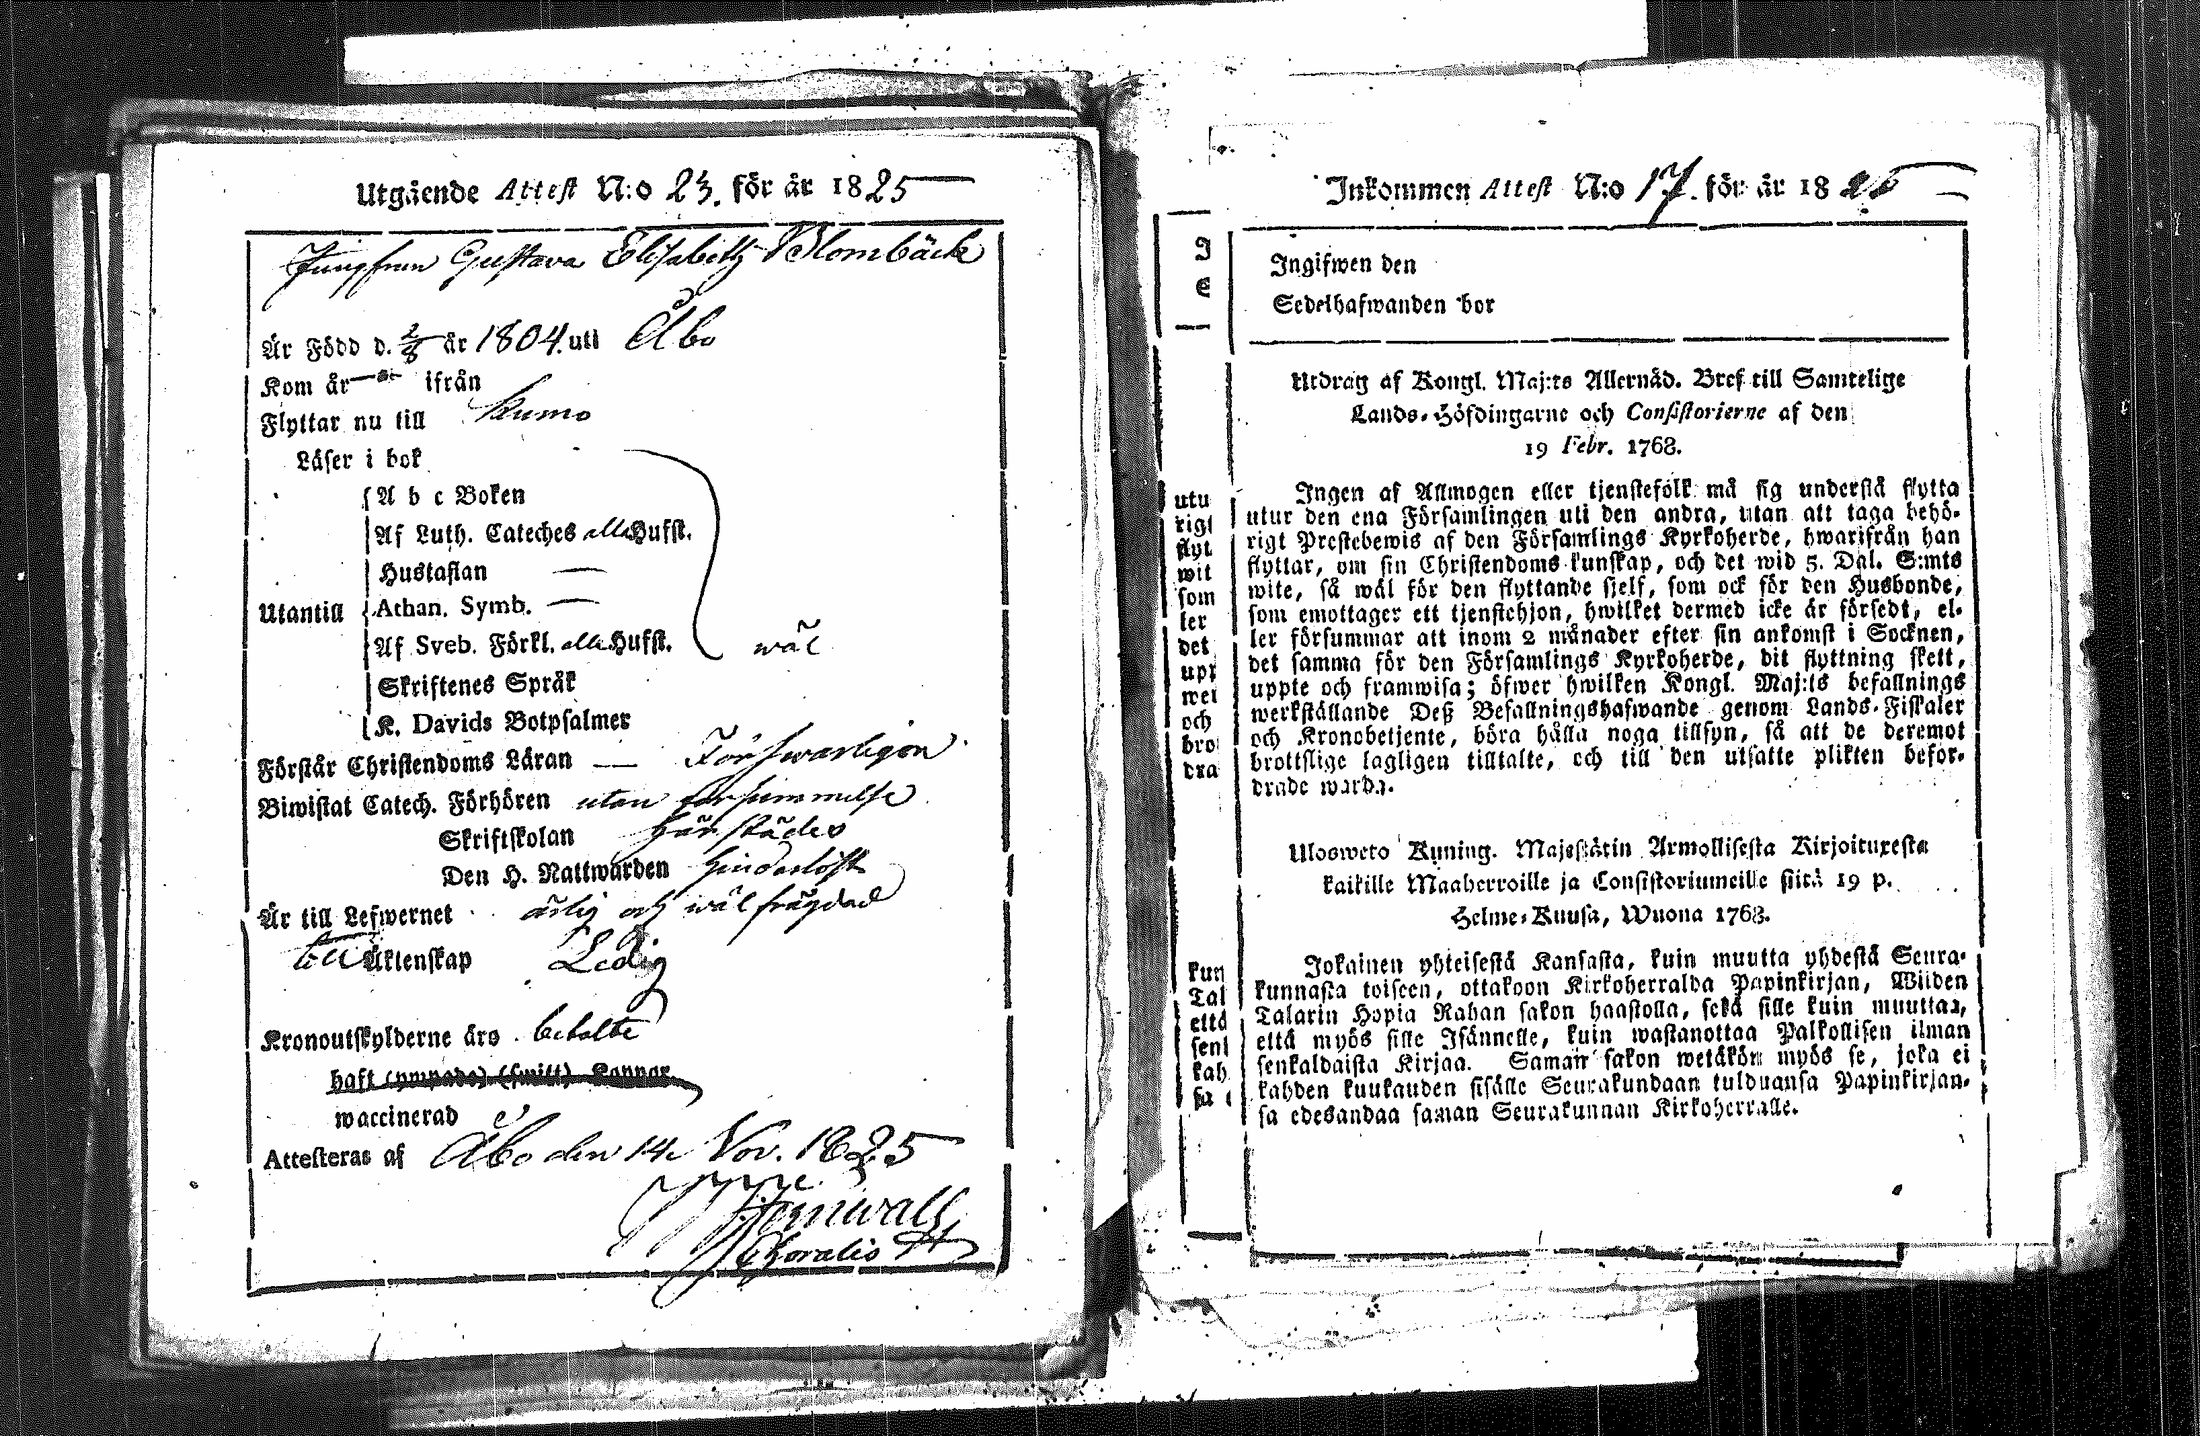 Utgående Attest N:o 23. för år 1825
Jungfrun Gustava Elisabeth Blombäck
Är Född d. 2/8 år 1804. uti Åbo
Kom år — ifrån
Flyttar nu till Kumo
Läser i bok
A b c Boken
Af Luth. Cateches alla Hufst.
Hustaflan —
Utantill Athan. Symb. —
Af Sveb. Förkl. alla Hufst. wäl
Skriftenes Språk
K. Davids Botpsalmer
Förstår Christendoms Läran — Förswarligen
Biwistat Catech. Förhören utan försummelse
Skriftskolan härstädes
Den H. Nattwarden hinderlöst
Är till Lefwernet ärlig och wälfrägdad
till Äktenskap Ledig
Kronoutskylderne äro betalte
haft (ympade) (smitt) Koppor
waccinerad
Attesteras af Åbo den 14 Nov. 1825
Inkommen Attest N:o 17. för år 18
Ingifwen den
Sedelhafwanden bor
Utdrag af Kongl. Maj:ts Allernåd. Bref till Samtelige
Lands-Höfdingarne och Consistorierne af den
19 Febr. 1768.
Ingen af Allmogen eller tjenstefolk må sig understå flytta
utur den ena Församlingen uti den andra, utan att taga behö-
rigt Prestebewis af den Församlings Kyrkoherde, hwarifrån han
flyttar, om sin Christendoms kunskap, och det wid 5. Dal. S:mts
wite, så wäl för den flyttande sjelf, som ock för den Husbonde,
som emottager ett tjenstehjon, hwilket dermed icke är försedt, el-
ler försummar att inom 2 månader efter sin ankomst i Socknen,
det samma för den Församlings Kyrkoherde, dit flyttning skett,
uppte och framwisa; öfwer hwilken Kongl. Maj:ts befallnings
werkställande Deß Befallningshafwande genom Lands-Fiskaler
och Kronobetjente, böra hålla noga tillsyn, så att de deremot
brottslige lagligen tilltalte, och till den utsatte plikten befor-
drade warda.
Ulosweto Kuning. Majestätin Armollisesta Kirjoituxesta
kaikille Maaherroille ja Consistoriumeille siitä 19 p.
Helme-Kuusa, Wuona 1768.
Jokainen yhteisestä Kansasta, kuin muutta yhdestä Seura-
kunnasta toiseen, ottakoon Kirkoherralda Papinkirjan, Wiiden
Talarin Hopia Rahan sakon haastolla, sekä sille kuin muuttaa,
että myös sille Isännelle, kuin wastanottaa Palkollisen ilman
senkaldaista Kirjaa. Saman sakon wetäkön myös se, joka ei
kahden kuukauden sisälle Seurakundaan tulduansa Papinkirjan-
sa edesandaa saman Seurakunnan Kirkoherralle.